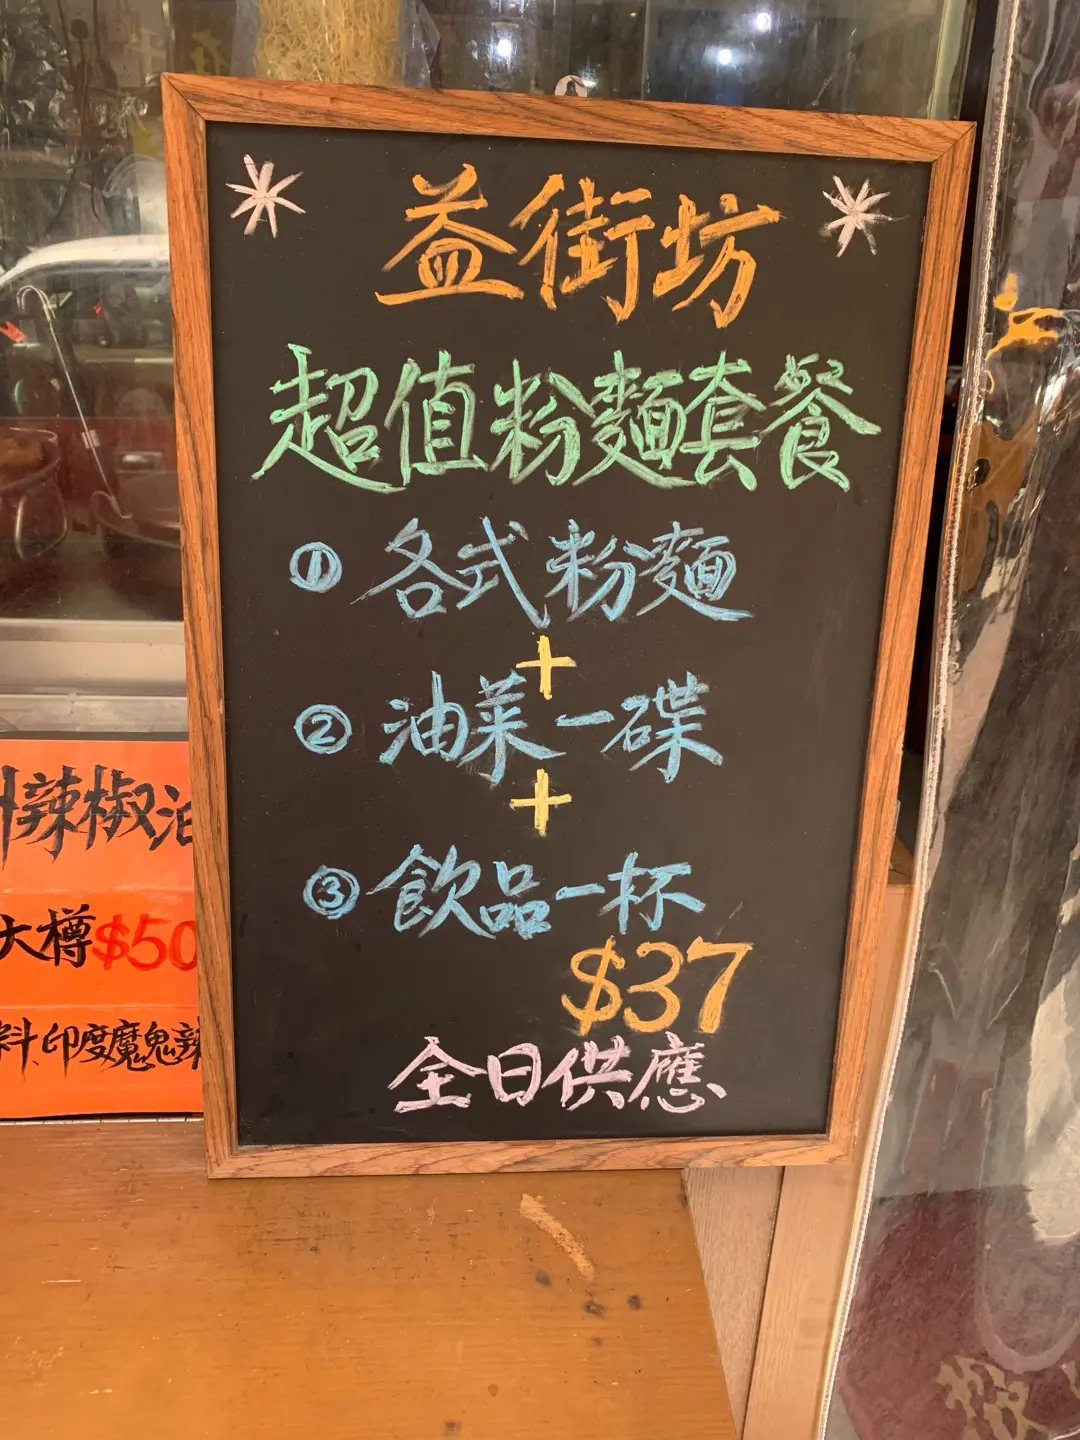 益街坊
超值粉麵套餐
① 各式粉麵
+
② 油菜一碟
+
③ 飲品一杯
$37
全日供應
辣椒油
大樽$50
料、印度魔鬼辣